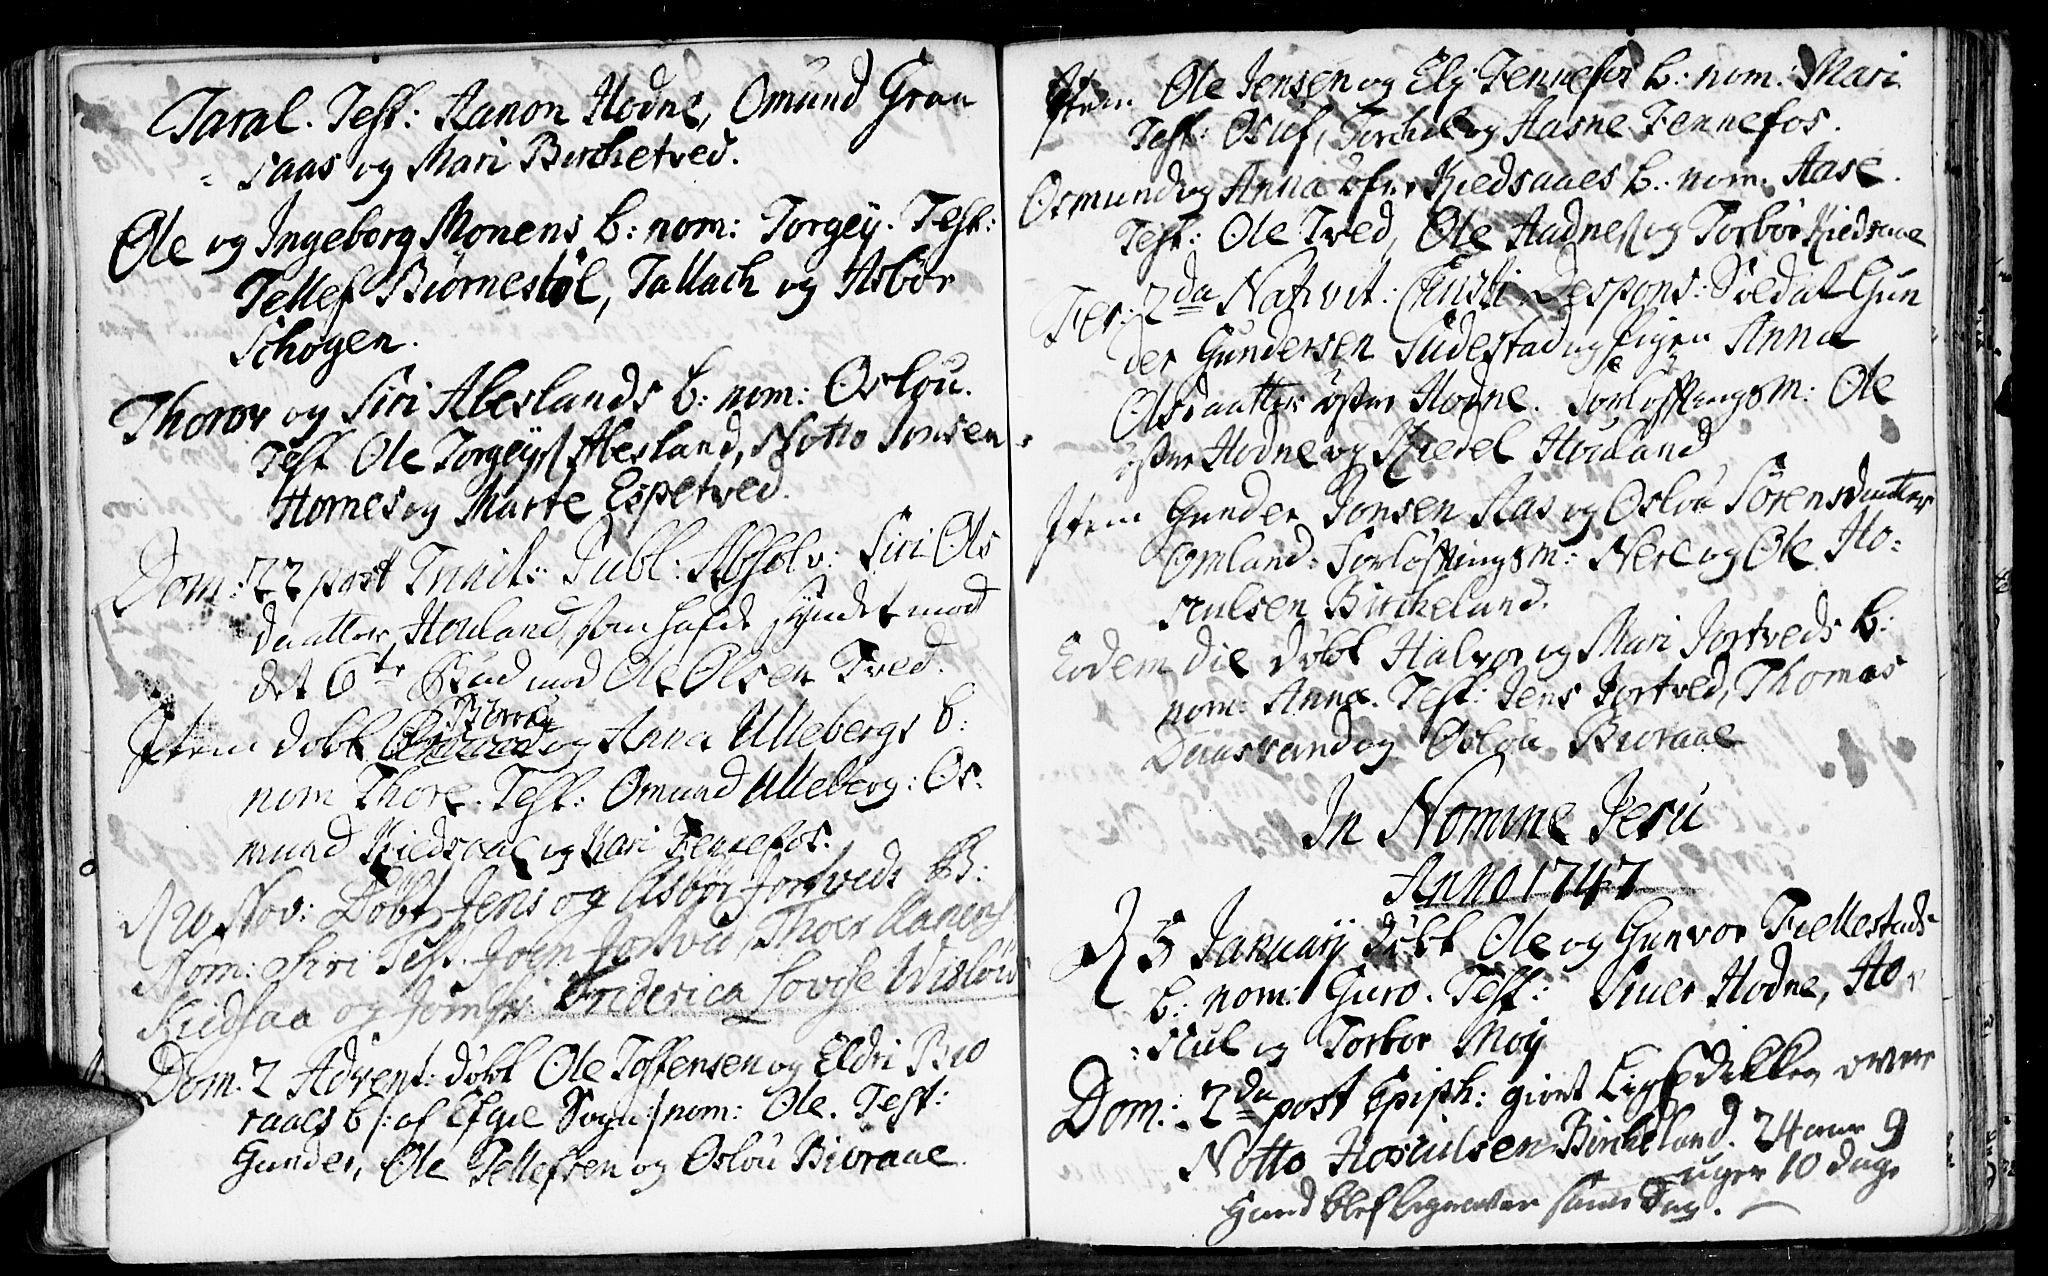 Taral. Test: Aanon Hodne, Omund Graa
= saas og Mari Birchetved.
Ole og Ingeborg Monens b: nom: Torgey. Test:
Tellef Biørnestøl, Tallach og Asbør
Schogen.
Thorer og Siri Abeslands b: nom: Oslou.
Test Ole Torgeys Abesland, Notto Jonsen
Hornes og Marte Espetved.
Dom: 22 post Trinit: Publ: Absolv: Siri Ols
daatter Houland, som hafde syndet mod
det 6te Bud med Ole Olsen Tved.
Item døbt og Anna Ullebergs b:
nom Thore. Test: Omund Ulleberg: Os-
mund Kiedsaae og Kari Fennefos.
20 Nov: Døbt Jens og Asbør Jortveds B:
Nom: Siri Test. Joen Jortved, Thoer Aanens
Kiedsaa og Jomfr: Friderica Lovise Wisløw
Dom. 2 Advent: døbt Ole Toftensen og Eldri Bio
raaes b/: af Efgie Sogn/ nom: Ole. Test:
Gunder, Ole Tellefsen og Oslou Bioraae.
Item Ole Jensen og Elj Fennefos b: nom: Mari
Test: Osuf, Torchel og Aasne Fennefos.
Osmund og Anna øfre Kiedsaaes b: nom. Aase.
Test: Ole Tved, Ole Aadnes og Torbor Kiedsaae
Fer: 2da Nativit: Christi Despons: Soldat Gun
der Gundersen Sudestad og Pigen Anna
Olsdaatter øster Hodne. Forløftningsm: Ole
øster Hodne og Kiedel Houland
Item Gunder Jonsen Aas og Oslou Sørensdaatter
Omland: Forløftningsm: Nere og Ole Ho=
sculsen Bircheland.
Eodem die døbt Halvor og Mari Jortveds b:
nom: Anna. Test: Jens Jortved, Thomas
Daasvand og Oslou Bioraae
In Nomine Jesu
Anno 1747
D 5 January døbt Ole og Gunvor Fiellestads
b: nom: Guro. Test: Siuer Hodne, Ho
= scul og Torbor Moy
Dom: 2da post Epiph: giort Ligprædikken over
Notto Hosculsen Bircheland. 24 aar 9
uger 10 dage
Hand blef begraven samme Dag.